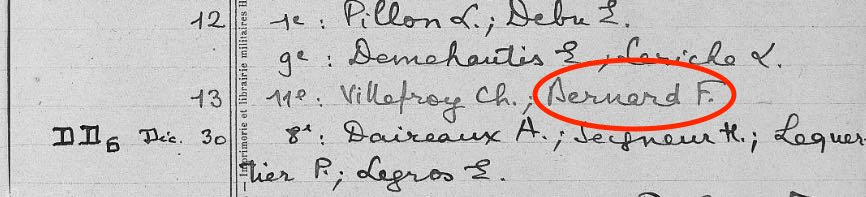 12 1e : Pillon L. ; Debu E.
9e : Demehautis E ; Leriche L.
13 11e : Villefroy Ch. ; Bernard F.
DD6 Déc. 30 8e : Daireaux A. ; Seigneur H. ; Lequer-
tier P. ; Legros E.
— Imprimerie et librairie militaires H